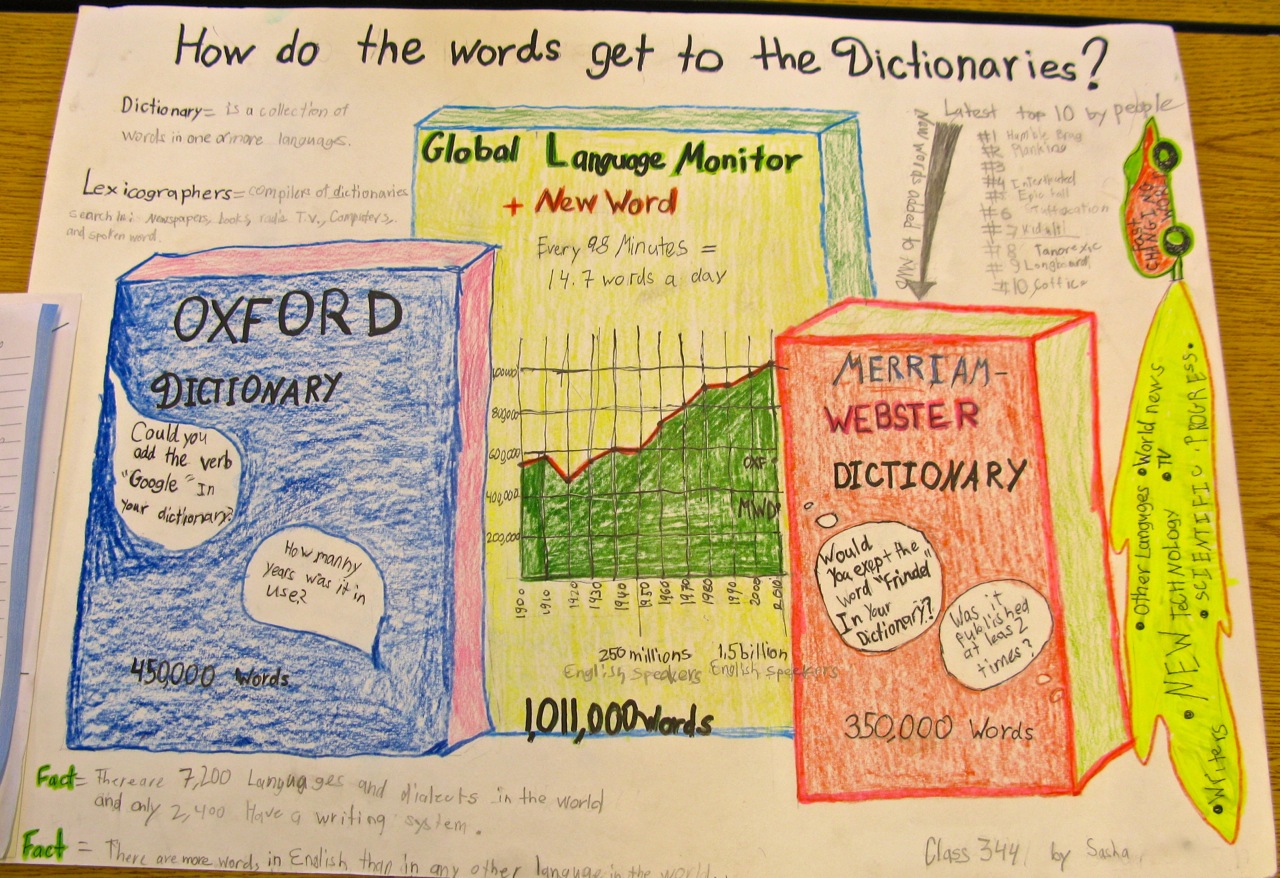 How do the words get to the Dictionaries?
Dictionary= is a collection of
words in one or more languages.
Lexicographers= compilers of dictionaries
Search in: Newspapers, books, radio T.V., Computers,
and spoken word.
Global Language Monitor
+ New Word
Every 98 Minutes =
14.7 words a day
800,000
600,000
400,000
200,000
OXF
MWD
1900
1910
1920
1930
1940
1950
1960
1970
1980
1990
2000
2010
250 millions
English speakers
1.5 billion
English speakers
1,011,000 words
OXFORD
DICTIONARY
Could you
add the verb
"Google" In
your dictionary?
How manhy
years was it in
use?
450,000 Words
New words added to MWD
Latest top 10 by people
#1 Humble Brag
#2 Planking
#3
#4
#5 Epic fail
#6
#7
#8 Tanorexic
#9 Longboard
#10
MERRIAM-
WEBSTER
DICTIONARY
Would
You exept the
word "Frindel"
In Your
Dictionary?
Was it
published
at leas 2
times?
350,000 Words
Fast
CHINGING
WORLD
• Other Languges • World news
• NEW TECHNOLOGY • TV
• SCIENTIFIC PROGRESS.
• Writers
Fact= There are 7,200 Languages and dialects in the world
and only 2,400 Have a writing system.
Fact = There are more words in English than in any other language in the world.
Class 344 by Sasha